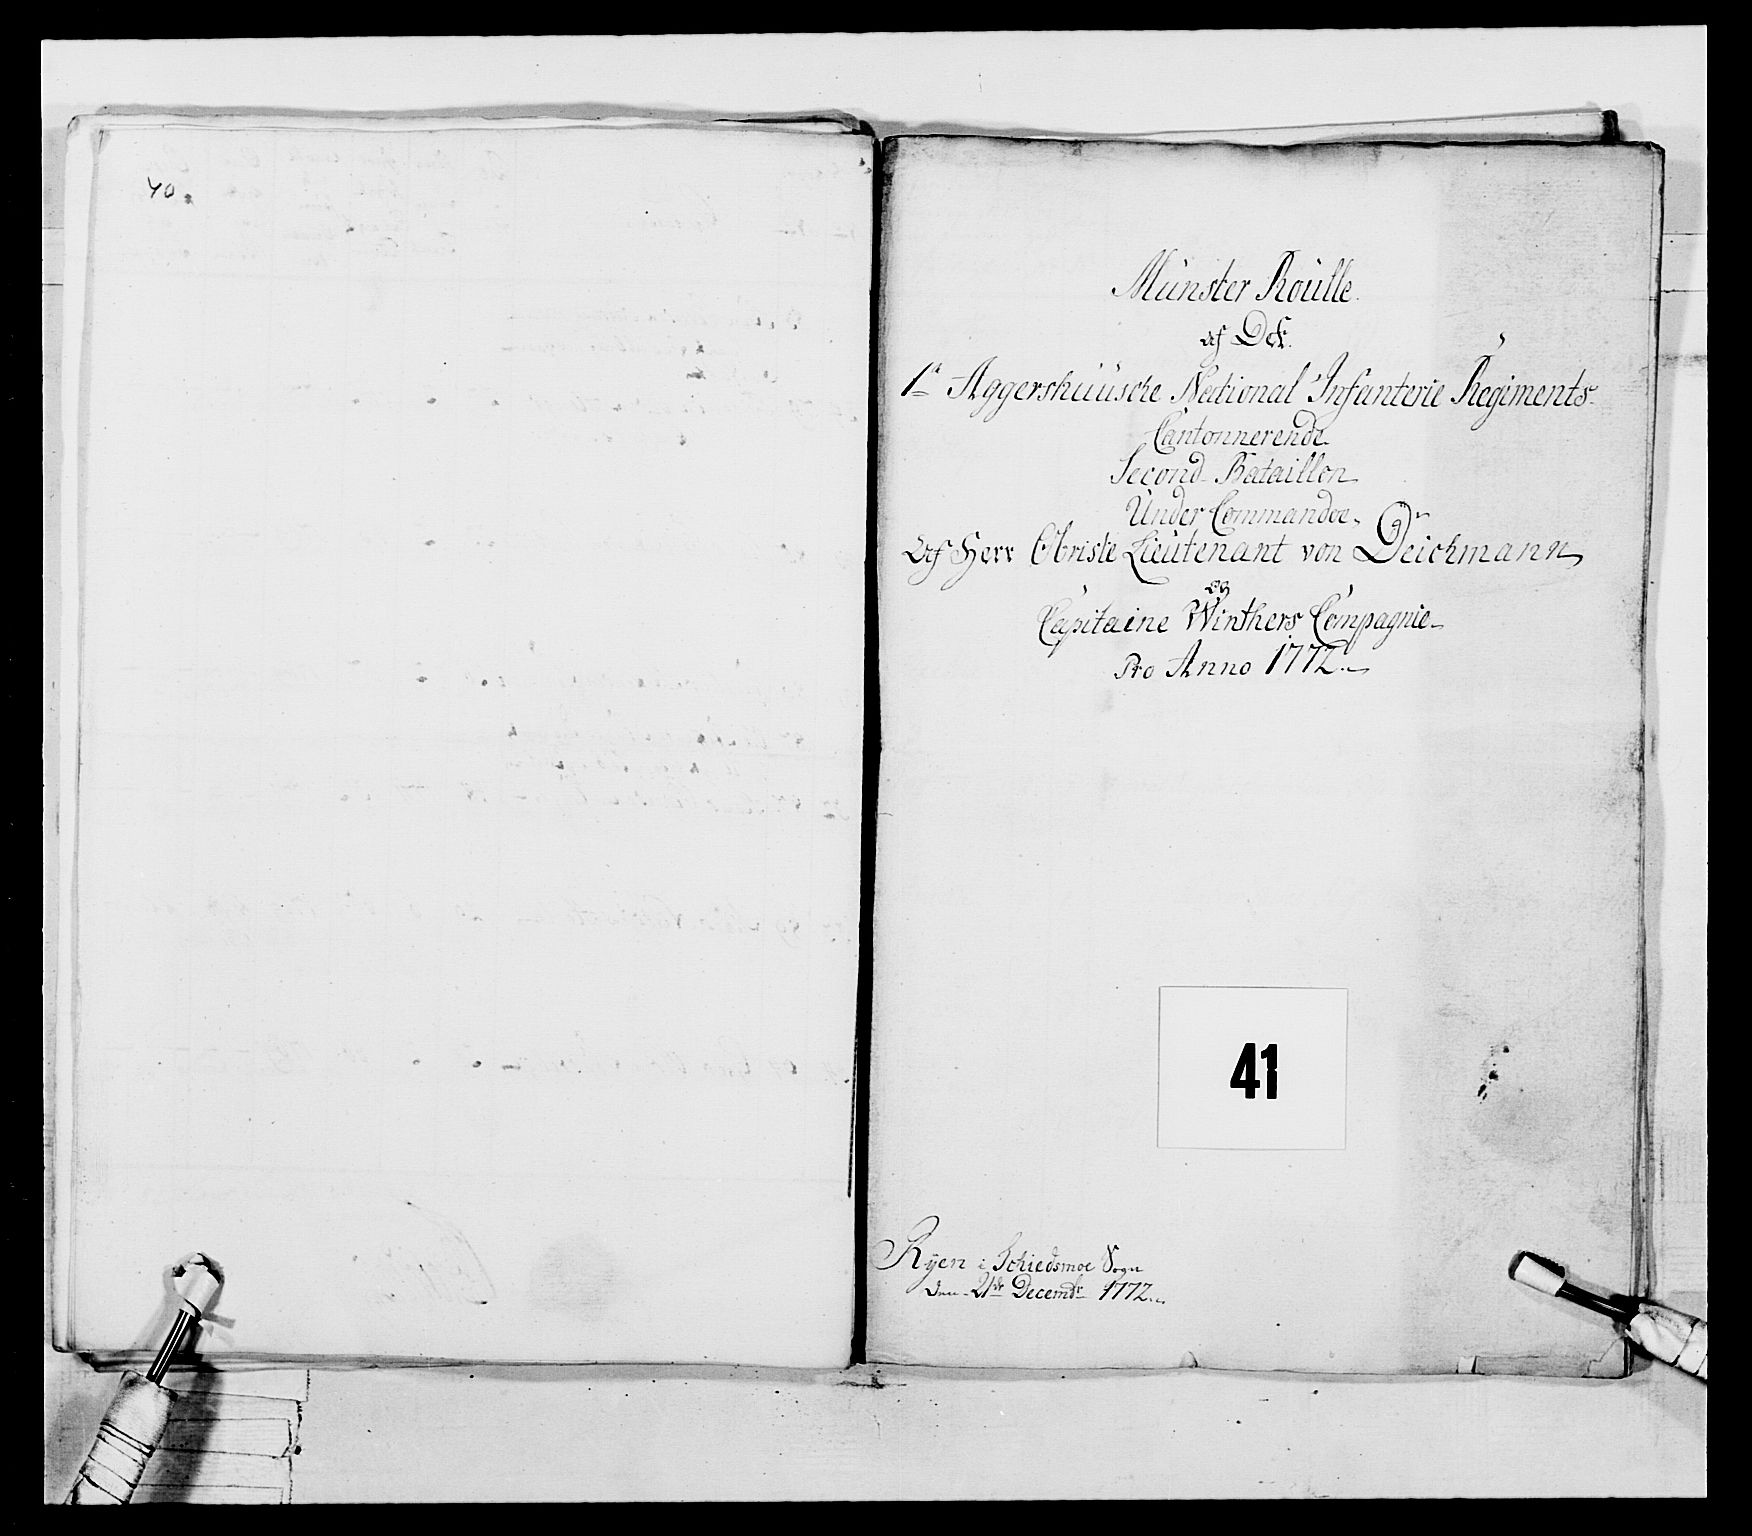 40.
Münster Roulle.
af Det.
1te Aggershuüsche National Infanterie Regiments
Cantonnerende
Second Bataillon
Under Commando
Af Herr Obriste Lieutenant von Deichmann
og
Capitaine Winthers Compagnie
Pro Anno 1772.
41
Ryen i Schiedsmoe Sogn
den 21de Decembr 1772.